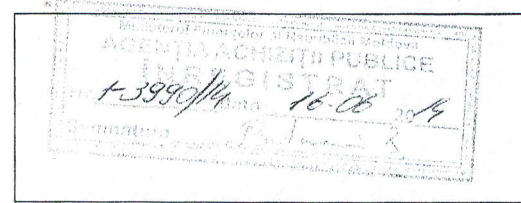 Ministerul Finanțelor al Republicii Moldova
AGENȚIA ACHIZIȚII PUBLICE
ÎNREGISTRAT
1-3990/14 data 16-06 2014
Semnătura